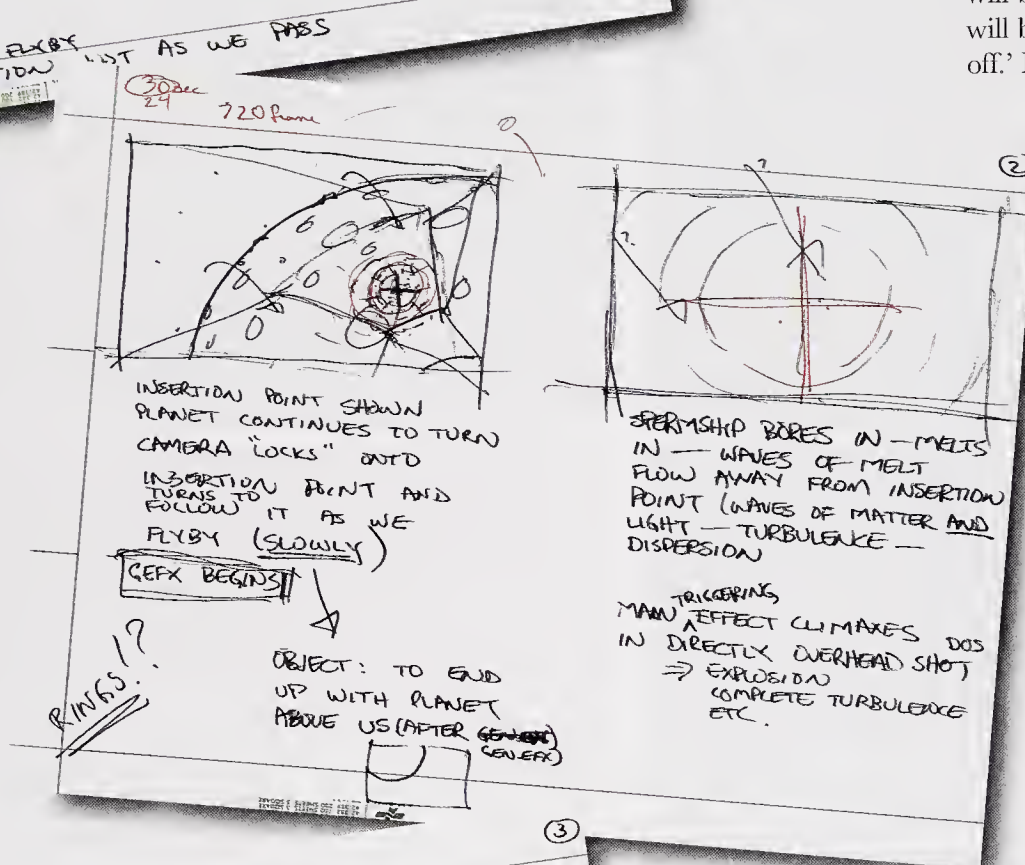 FLYBY
AS WE PASS
will b
off.'
30 sec
24
720 frame
2
?
?
INSERTION POINT SHOWN
PLANET CONTINUES TO TURN
CAMERA "LOCKS" ONTO
INSERTION POINT AND
TURNS TO
FOLLOW IT AS WE
FLYBY (SLOWLY)
GEFX BEGINS
RINGS!?
OBJECT: TO END
UP WITH PLANET
ABOVE US (AFTER
GEN.EFX)
SPERMSHIP BORES IN — MELTS
IN — WAVES OF MELT
FLOW AWAY FROM INSERTION
POINT (WAVES OF MATTER AND
LIGHT — TURBULENCE —
DISPERSION
TRIGGERING
MAIN EFFECT CLIMAXES DOS
IN DIRECTLY OVERHEAD SHOT
⇒ EXPLOSION
COMPLETE TURBULENCE
ETC.
3